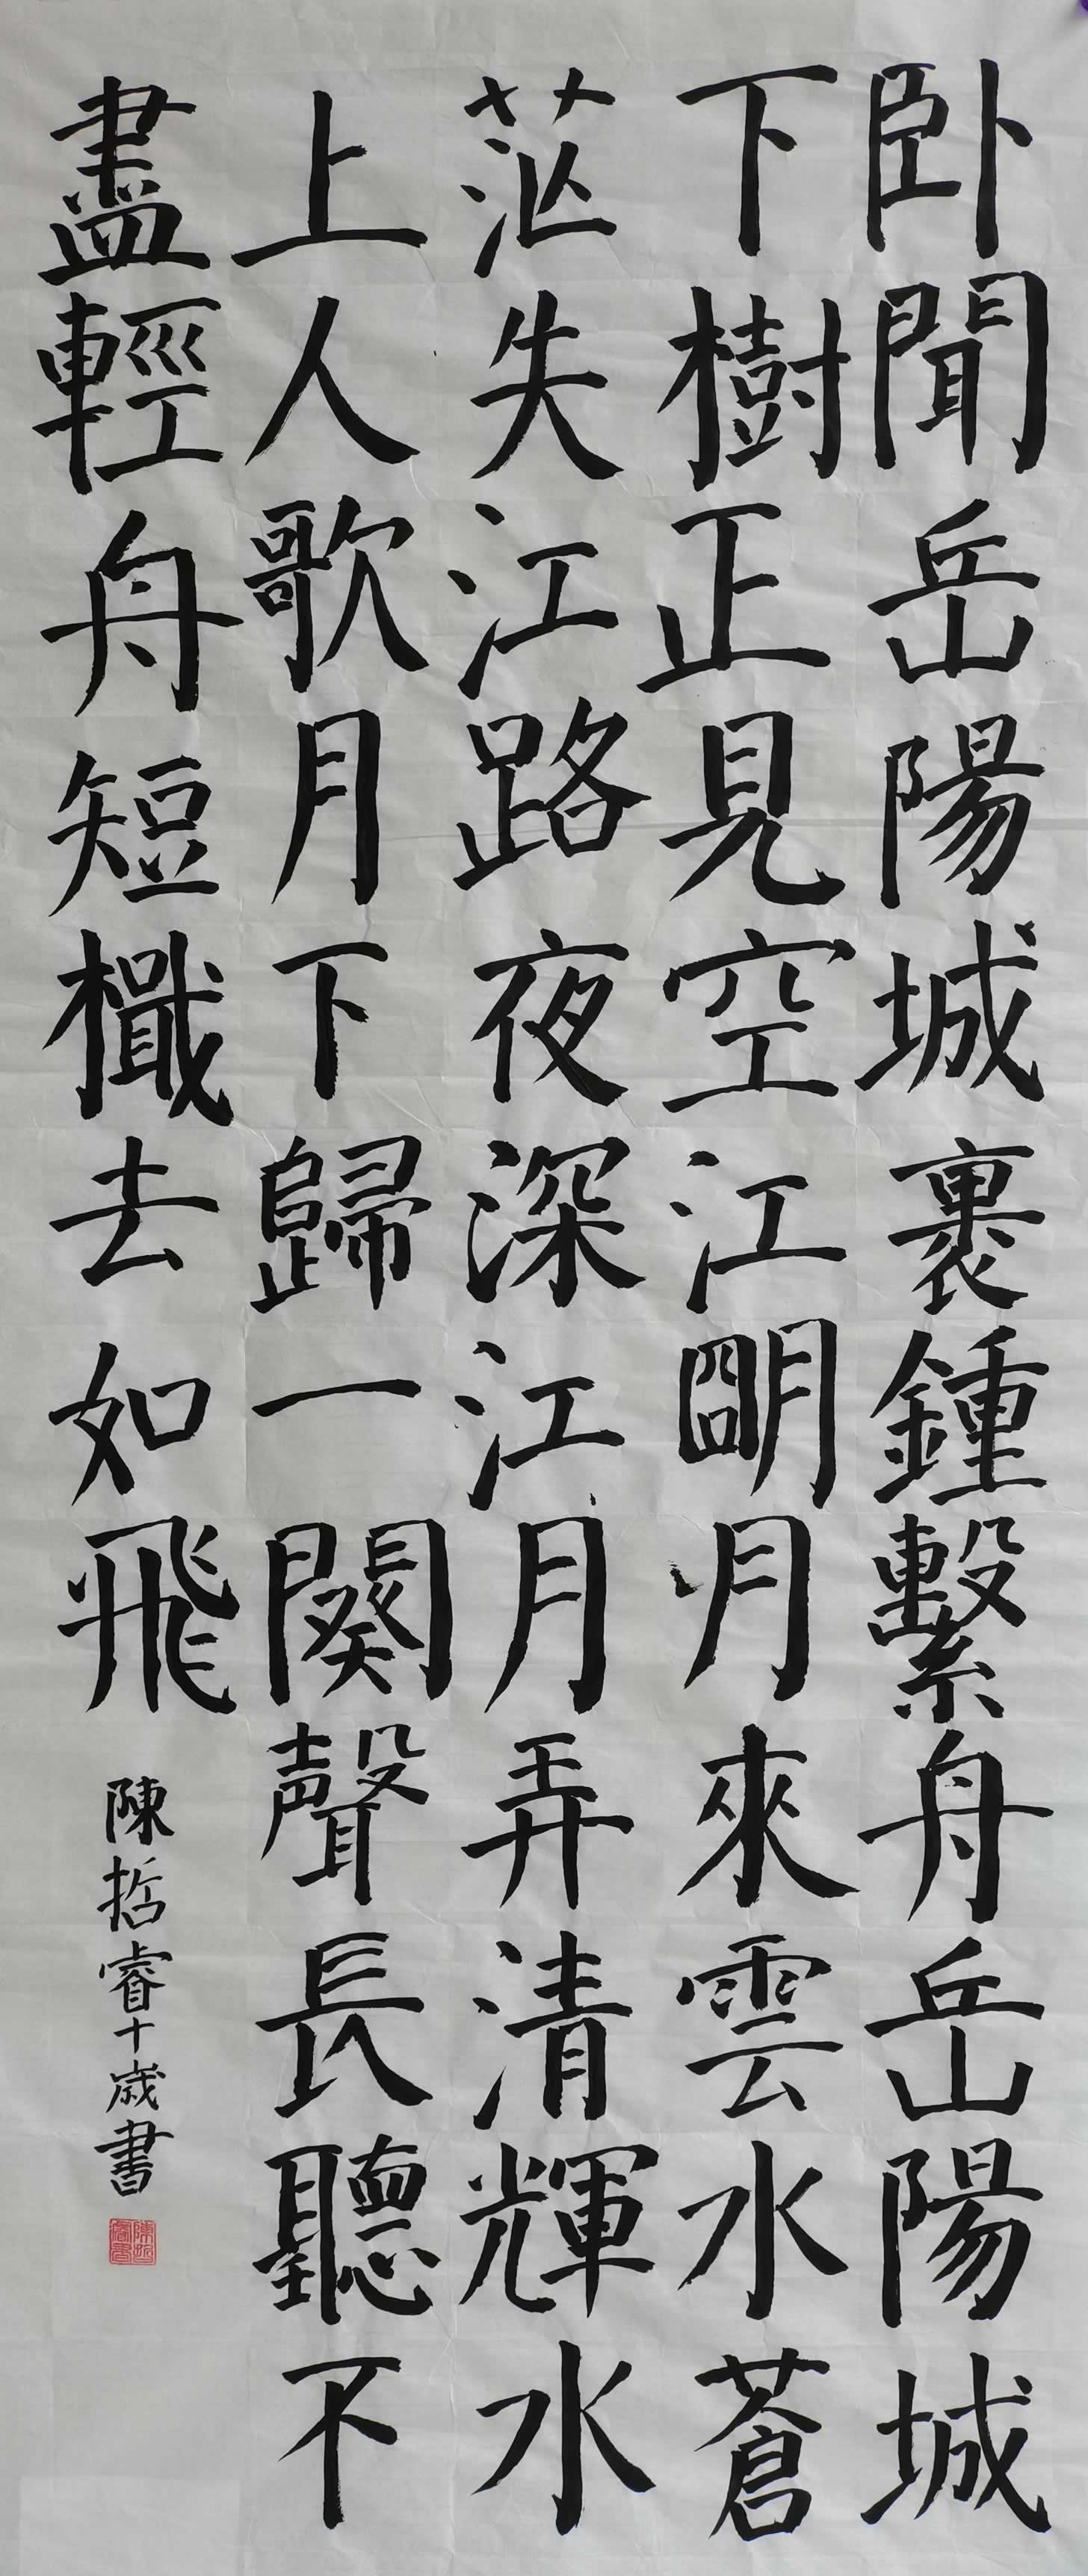 卧聞岳陽城裏鍾繫舟岳陽城
下樹正見空江朙月來雲水蒼
茫失江路夜深江月弄清輝水
上人歌月下歸一闋聲長聽不
盡輕舟短檝去如飛
陳哲睿十歲書